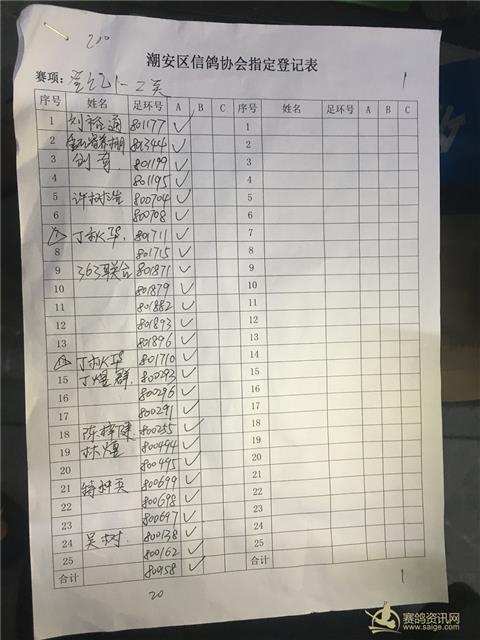 200
潮安区信鸽协会指定登记表
赛项: 1-2关 1
序号 姓名 足环号 A B C 序号 姓名 足环号 A B C
1 801177 ✓ 1
2 803444 ✓ 2
3 801199 ✓ 3
4 801195 ✓ 4
5 许树生 800704 ✓ 5
6 800708 ✓ 6
丁秋华. 801711 ✓ 7
8 801715 ✓ 8
9 363联合 801871 ✓ 9
10 801879 ✓ 10
11 801882 ✓ 11
12 801893 ✓ 12
13 801896 ✓ 13
丁秋华 801710 ✓ 14
15 丁煜群. 800293 ✓ 15
16 800296 ✓ 16
17 800291 ✓ 17
18 陈梓健 800255 ✓ 18
19 林煌 800494 ✓ 19
20 800495 ✓ 20
21 800699 ✓ 21
22 800698 ✓ 22
23 800697 ✓ 23
24 吴树. 800138 ✓ 24
25 800162 ✓ 25
合计 800158 ✓ 合计
20 1
赛鸽资讯网
www.saige.com